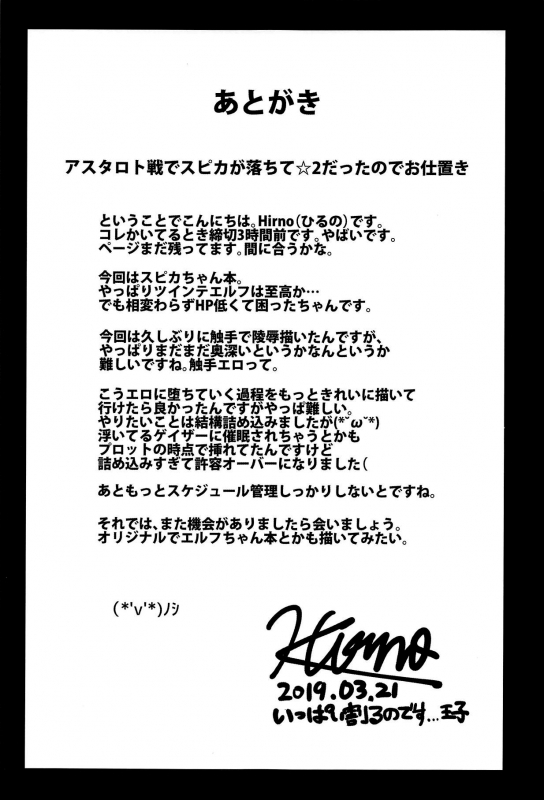 あとがき
アスタロト戦でスピカが落ちて☆2だったのでお仕置き
ということでこんにちは。Hirno(ひるの)です。
コレかいてるとき締切3時間前です。やばいです。
ページまだ残ってます。間に合うかな。
今回はスピカちゃん本。
やっぱりツインテエルフは至高か…
でも相変わらずHP低くて困ったちゃんです。
今回は久しぶりに触手で陵辱描いたんですが、
やっぱりまだまだ奥深いというかなんというか
難しいですね。触手エロって。
こうエロに堕ちていく過程をもっときれいに描いて
行けたら良かったんですがやっぱ難しい。
やりたいことは結構詰め込みましたが(*˘ω˘*)
浮いてるゲイザーに催眠されちゃうとかも
プロットの時点で挿れてたんですけど
詰め込みすぎて許容オーバーになりました(
あともっとスケジュール管理しっかりしないとですね。
それでは、また機会がありましたら会いましょう。
オリジナルでエルフちゃん本とかも描いてみたい。
(*'v'*)ﾉｼ
Hirno
2019.03.21
いっぱい割るのです…玉子